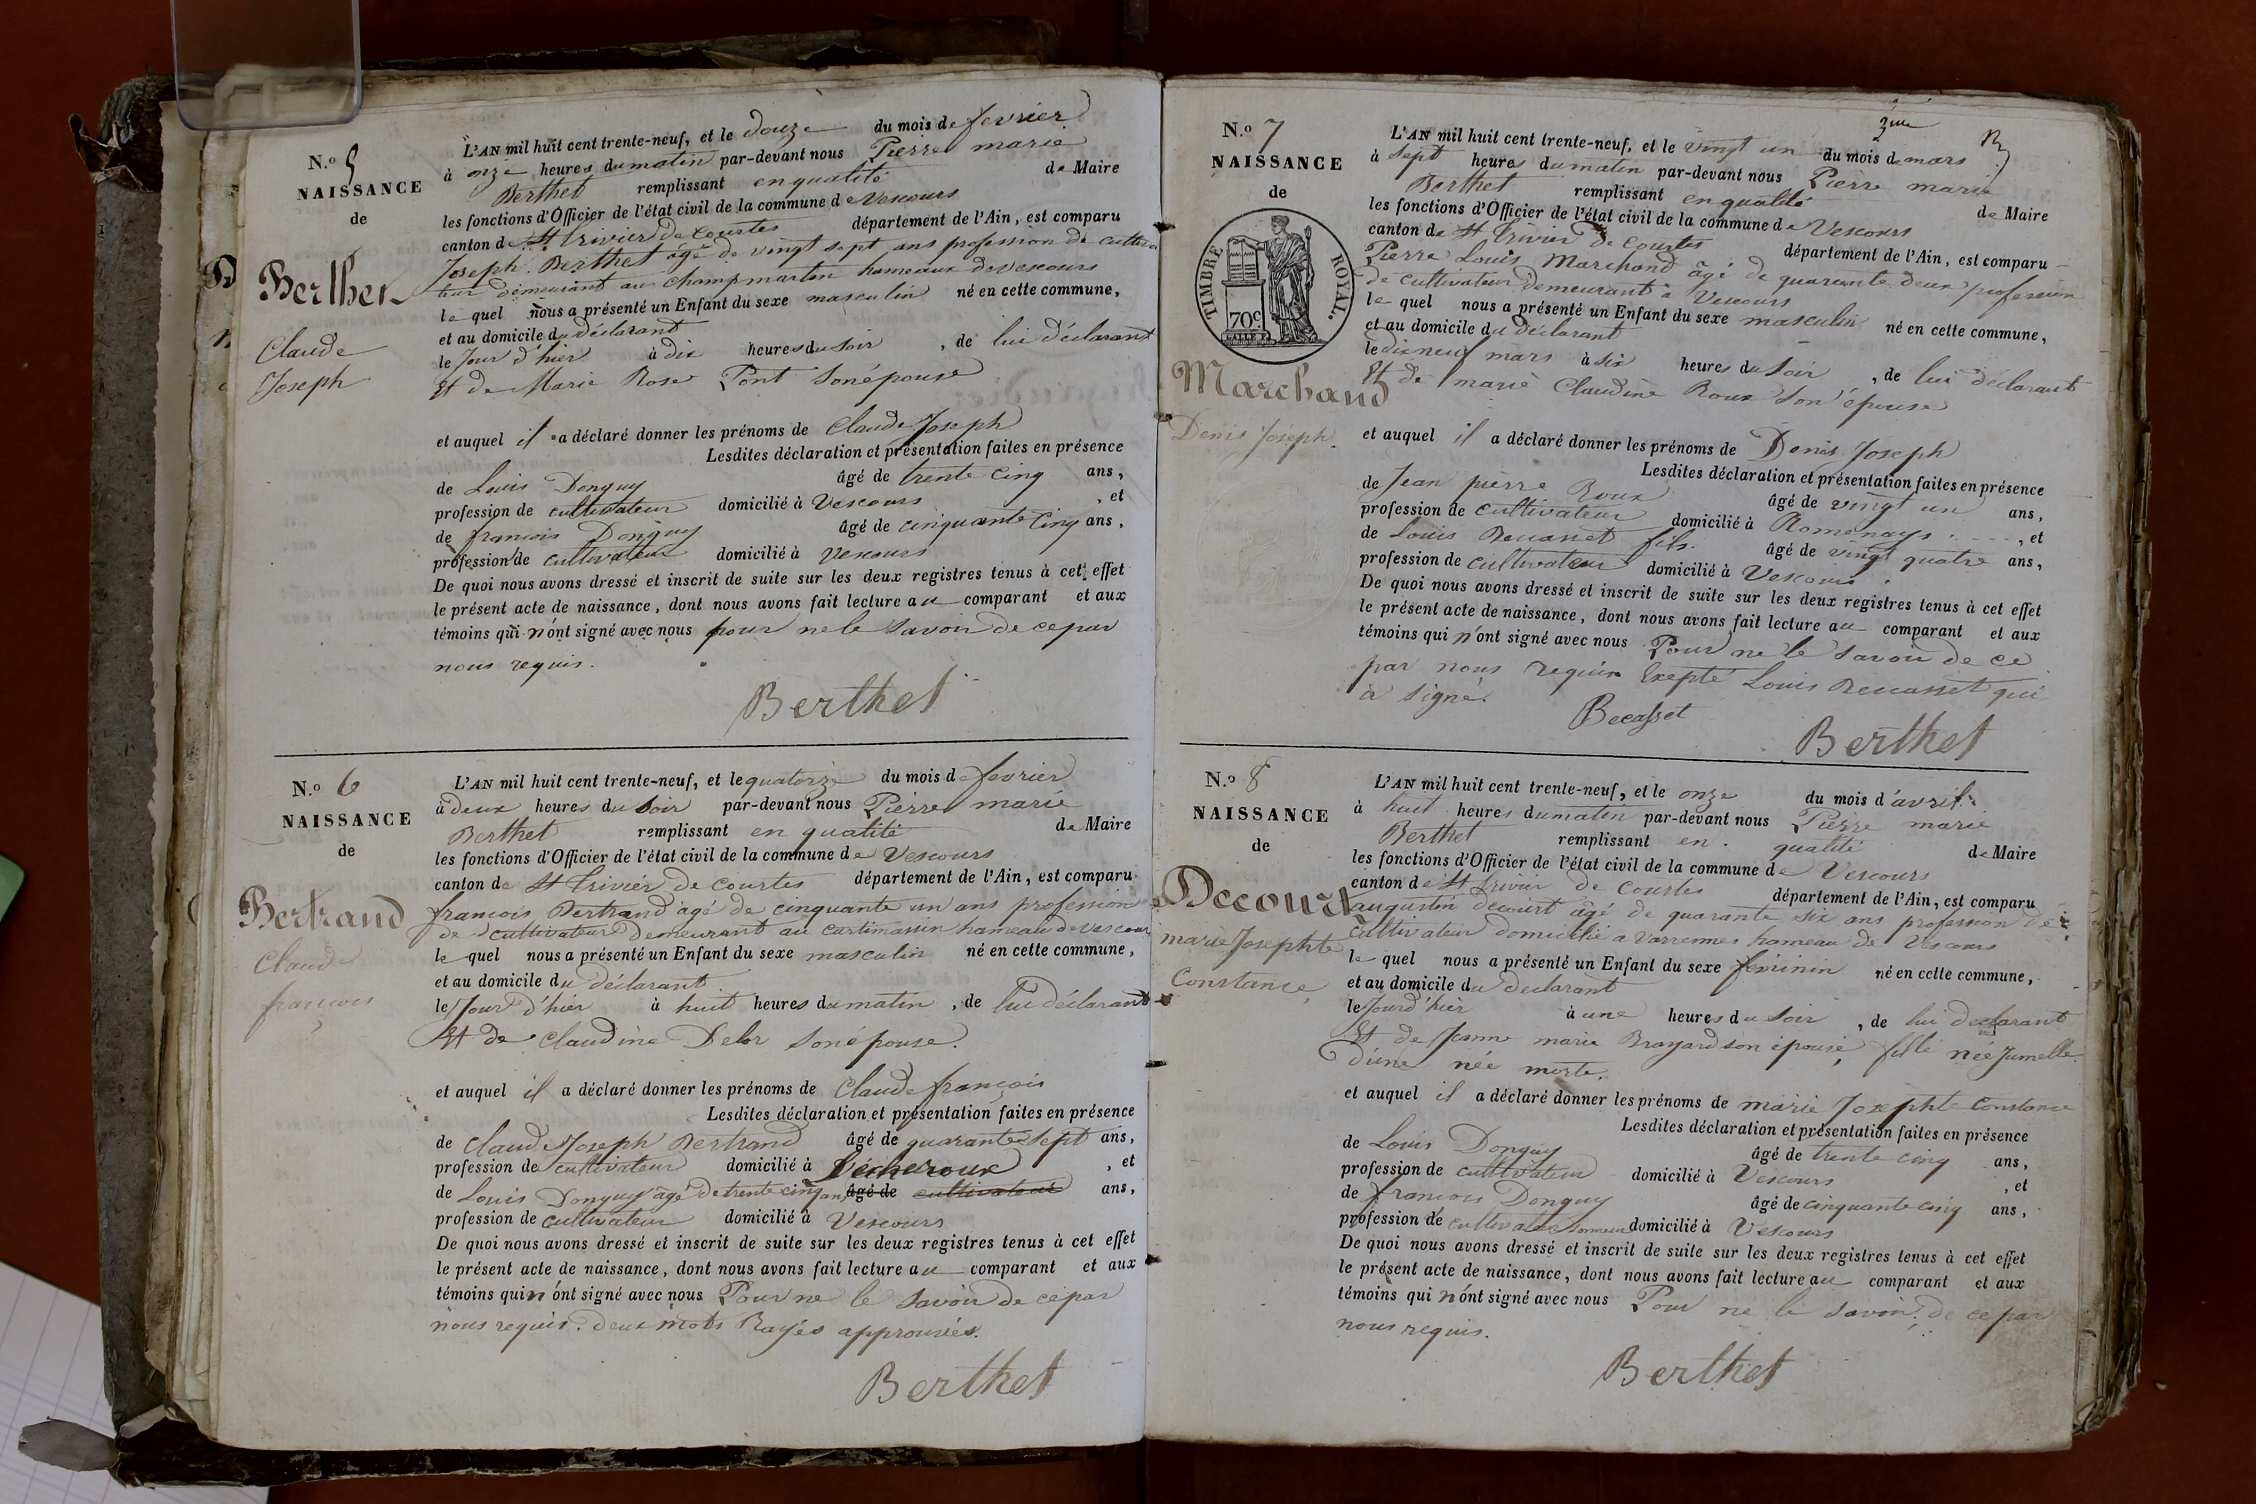 N.o 5
NAISSANCE
de
Berthet
Claude
Joseph
L'AN mil huit cent trente-neuf, et le douze du mois de fevrier
à onze heures du matin par-devant nous Pierre marie
Berthet remplissant en qualité de Maire
les fonctions d'Officier de l'état civil de la commune de Vescours
canton de St trivier de Courtes département de l'Ain, est comparu
Joseph Berthet âgé de vingt sept ans profession de cultiva
teur demeurant au champ martin hameaux de vescours
le quel nous a présenté un Enfant du sexe masculin né en cette commune,
et au domicile du déclarant
le Jour d'hier à dix heures du soir, de lui déclarant
Et de Marie Rose Pont son épouse
et auquel il a déclaré donner les prénoms de Claude Joseph
Lesdites déclaration et présentation faites en présence
de Louis Donguy âgé de trente cinq ans,
profession de cultivateur domicilié à Vescours, et
de francois Donguy âgé de cinquante cinq ans,
profession de cultivateur domicilié à vescours
De quoi nous avons dressé et inscrit de suite sur les deux registres tenus à cet effet
le présent acte de naissance, dont nous avons fait lecture au comparant et aux
témoins qui n'ont signé avec nous pour ne le savoir de ce par
nous requis.
Berthet
N.o 6
NAISSANCE
de
Bertrand
Claude
francois
L'AN mil huit cent trente-neuf, et le quatorze du mois de fevrier
à deux heures du soir par-devant nous Pierre marie
Berthet remplissant en qualité de Maire
les fonctions d'Officier de l'état civil de la commune de Vescours
canton de St trivier de courtes département de l'Ain, est comparu
francois Bertrand âgé de cinquante un ans profession
de cultivateur demeurant au curtimassin hameau de vescours
le quel nous a présenté un Enfant du sexe masculin né en cette commune,
et au domicile du déclarant
le Jour d'hier à huit heures du matin, de lui déclarant
Et de Claudine Delor son épouse.
et auquel il a déclaré donner les prénoms de Claude françois
Lesdites déclaration et présentation faites en présence
de Claude Joseph Bertrand âgé de quarante sept ans,
profession de cultivateur domicilié à Lécheroux, et
de Louis Donguy âgé de trente cinq ans âgé de cultivateur ans,
profession de cultivateur domicilié à Vescours
De quoi nous avons dressé et inscrit de suite sur les deux registres tenus à cet effet
le présent acte de naissance, dont nous avons fait lecture au comparant et aux
témoins qui n'ont signé avec nous Pour ne le savoir de ce par
nous requis. deux mots Rayés approuvés.
Berthet
3me
N.o 7
NAISSANCE
de
TIMBRE ROYAL.
70c
Marchand
Denis Joseph
L'AN mil huit cent trente-neuf, et le vingt un du mois de mars
à sept heures du matin par-devant nous Pierre marie
Berthet remplissant en qualité de Maire
les fonctions d'Officier de l'état civil de la commune de Vescours
canton de St trivier de Courtes département de l'Ain, est comparu
Pierre Louis Marchand âgé de quarante deux profession
de cultivateur demeurant à Vescours
le quel nous a présenté un Enfant du sexe masculin né en cette commune,
et au domicile du déclarant
le dix neuf mars à six heures du soir, de lui déclarant
Et de marie Claudine Roux son épouse
et auquel il a déclaré donner les prénoms de Denis Joseph
Lesdites déclaration et présentation faites en présence
de Jean pierre Roux âgé de vingt un ans,
profession de cultivateur domicilié à Romenays, et
de Louis Beccasset fils. âgé de vingt quatre ans,
profession de cultivateur domicilié à Vescours
De quoi nous avons dressé et inscrit de suite sur les deux registres tenus à cet effet
le présent acte de naissance, dont nous avons fait lecture au comparant et aux
témoins qui n'ont signé avec nous Pour ne le savoir de ce
par nous requis Exepté Louis Beccasset qui
a signé.
Becasset
Berthet
N.o 8
NAISSANCE
de
Decourt
marie Josephte
Constance
L'AN mil huit cent trente-neuf, et le onze du mois d'avril
à huit heures du matin par-devant nous Pierre marie
Berthet remplissant en qualité de Maire
les fonctions d'Officier de l'état civil de la commune de Vescours
canton de St trivier de Courtes département de l'Ain, est comparu
augustin decourt âgé de quarante six ans profession de
cultivateur domicilié a varrennes hameau de Vescours
le quel nous a présenté un Enfant du sexe féminin né en cette commune,
et au domicile du déclarant
le Jour d'hier à une heures du soir, de lui déclarant
Et de Jeanne marie Brayard son épouse, fille née Jumelle
d'une née morte.
et auquel il a déclaré donner les prénoms de marie Josephte Constance
Lesdites déclaration et présentation faites en présence
de Louis Donguy âgé de trente cinq ans,
profession de cultivateur domicilié à Vescours, et
de francois Donguy âgé de cinquante cinq ans,
profession de cultivateur domicilié à Vescours
De quoi nous avons dressé et inscrit de suite sur les deux registres tenus à cet effet
le présent acte de naissance, dont nous avons fait lecture au comparant et aux
témoins qui n'ont signé avec nous Pour ne le savoir de ce par
nous requis.
Berthet